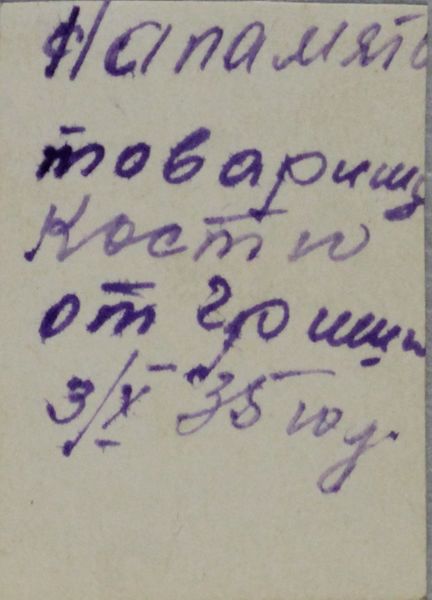 На память
товарищу
Костю
от Гриши
3/X 35 год.